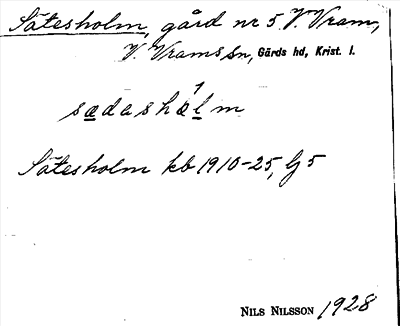 Sätesholm, gård nr 5 V. Vram,
V. Vrams sn, Gärds hd, Krist. l.
sädashólm
Sätesholm kb 1910-25, Lj 5
NILS NILSSON 1928